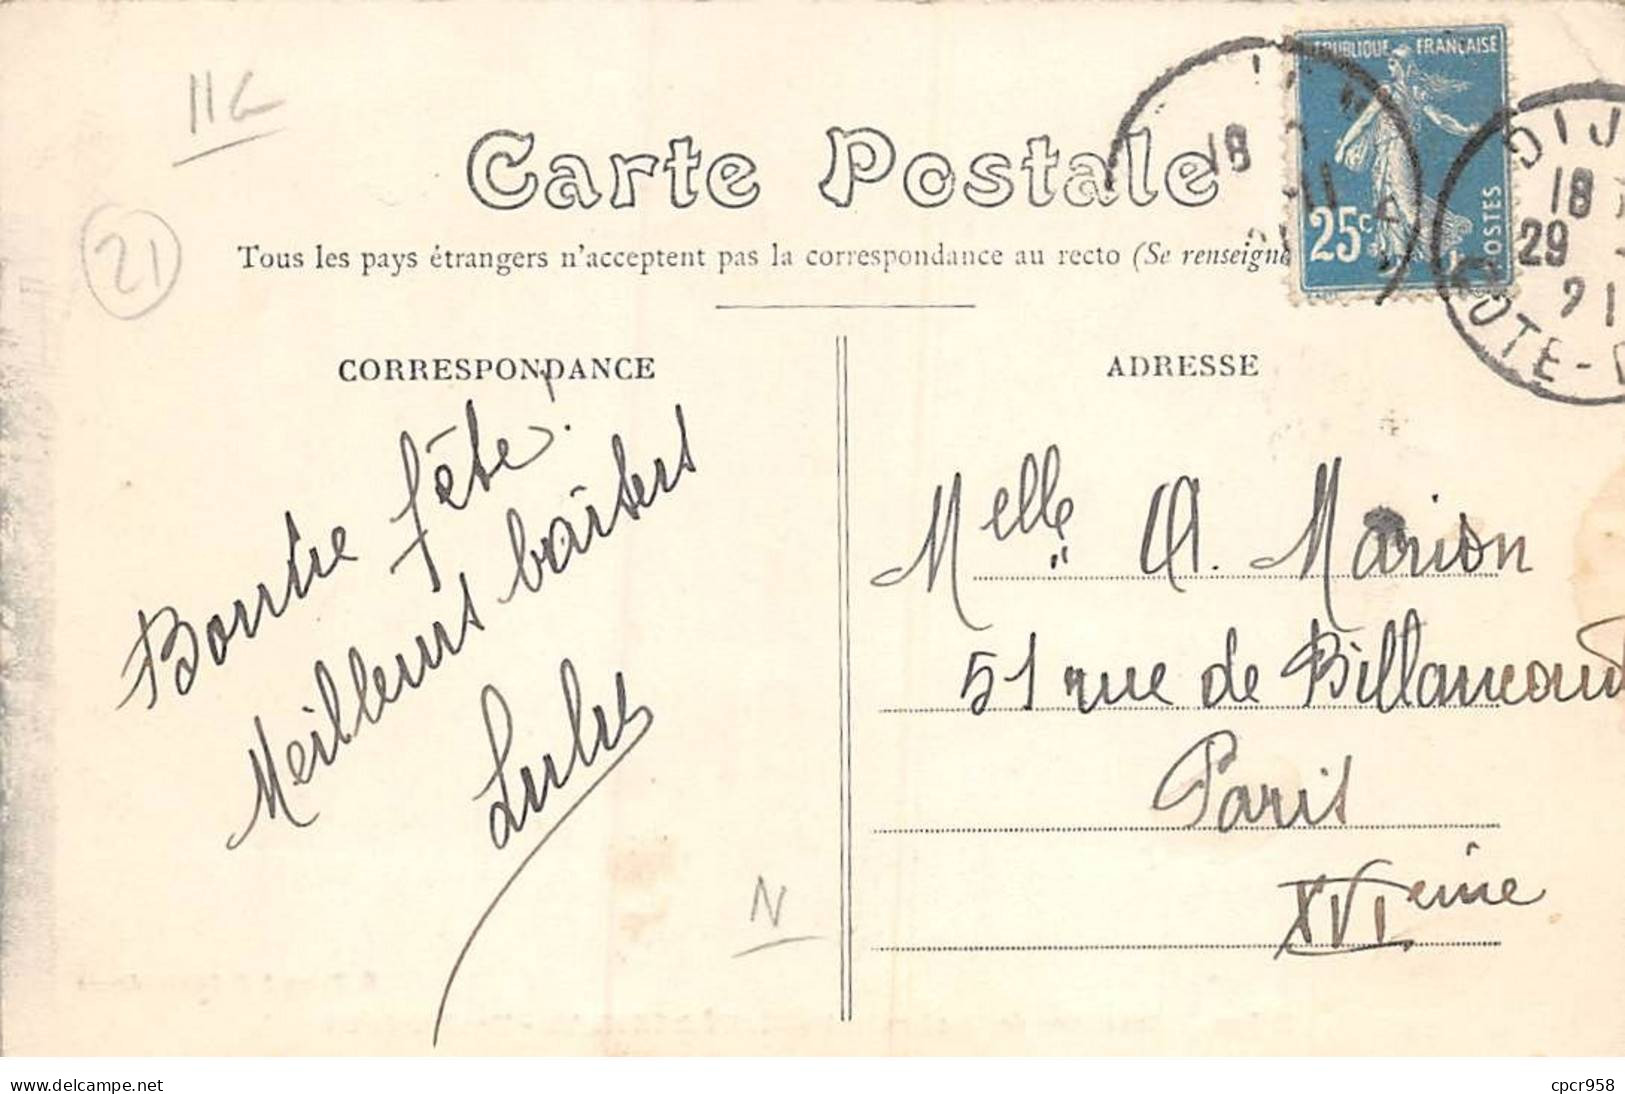 11G
21
Carte Postale
Tous les pays étrangers n'acceptent pas la correspondance au recto (Se renseigne
RÉPUBLIQUE FRANÇAISE
25c
POSTES
18
11
DIJ
18
29
21
COTE-D
CORRESPONDANCE
ADRESSE
Bonne fête!
Meilleurs baisers
Lulu
N
Melle A. Marion
51 rue de Billancourt
Paris
XVIeme
www.delcampe.net
cpcr958